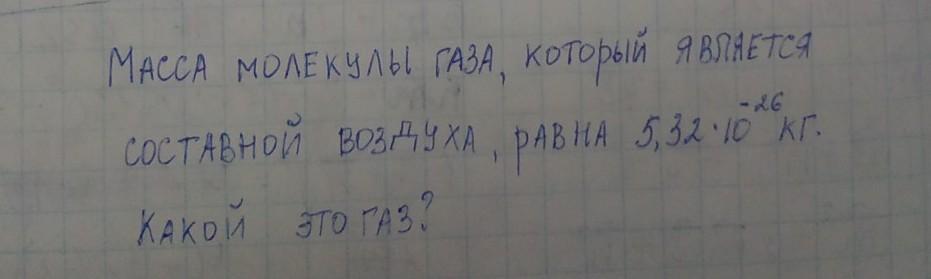 Масса молекулы газа, который является
составной воздуха, равна 5,32·10⁻²⁶ кг.
Какой это газ?